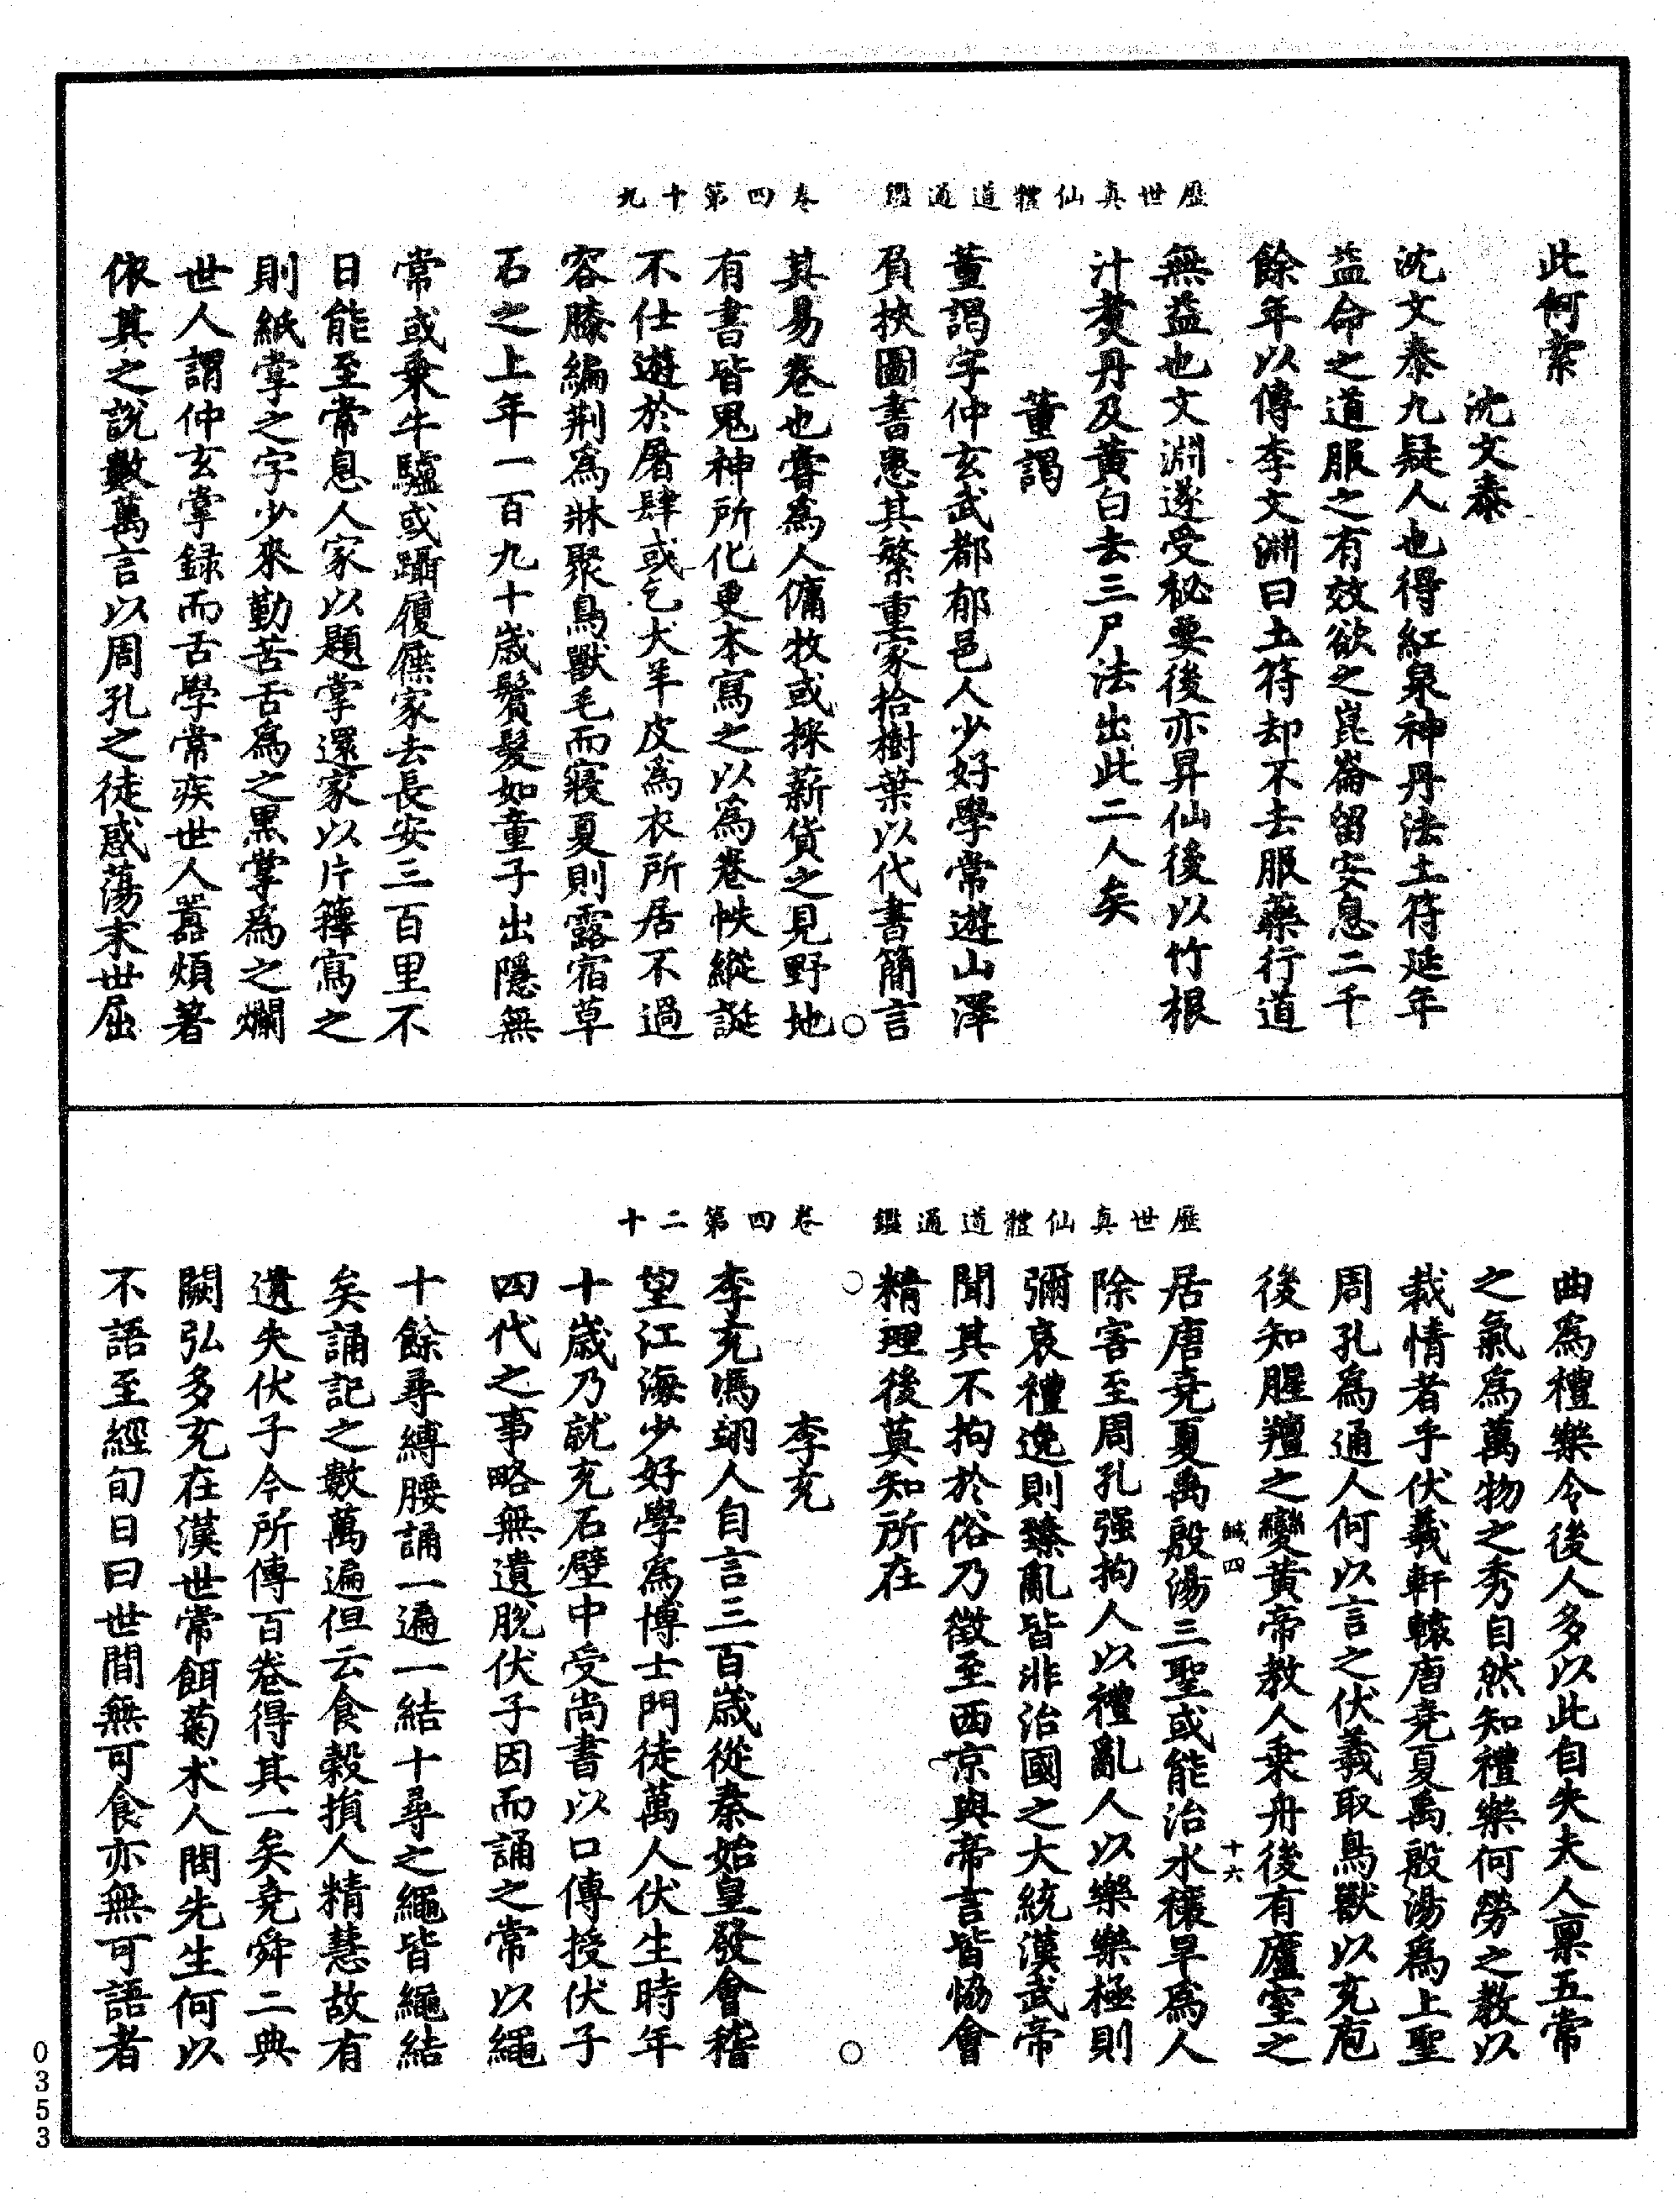 歷世真仙體道通鑑　卷四第十九
此何索
沈文泰
沈文泰九疑人也得紅泉神丹法土符延年
益命之道服之有效欲之崑崙留安息二千
餘年以傳李文淵曰土符却不去服藥行道
無益也文淵遂受祕要後亦昇仙後以竹根
汁煑丹及黃白去三尸法出此二人矣
董謁
董謁字仲玄武都郁邑人少好學常遊山澤
負挾圖書患其繁重家拾樹葉以代書簡言
其易卷也嘗爲人傭牧或採薪貨之見野地
有書皆鬼神所化更本寫之以爲卷帙縱誕
不仕遊於屠肆或乞犬羊皮爲衣所居不過
容膝編荆爲牀聚鳥獸毛而寢夏則露宿草
石之上年一百九十歲鬢髮如童子出隱無
常或乗牛驢或躡履屩家去長安三百里不
日能至常息人家以題掌還家以片籜寫之
則紙掌之字少來勤苦舌爲之黒掌爲之爛
世人謂仲玄掌録而舌學常疾世人嚣煩著
依其之說數萬言以周孔之徒惑蕩末世屈
歷世真仙體道通鑑　卷四第二十
曲爲禮樂令後人多以此自失夫人禀五常
之氣爲萬物之秀自然知禮樂何勞之教以
裁情者乎伏羲軒轅唐堯夏禹殷湯爲上聖
周孔爲通人何以言之伏羲取鳥獸以充庖
後知腥羶之變黃帝教人乗舟後有廬室之
鹹四　十六
居唐堯夏禹殷湯三聖或能治水穰旱爲人
除害至周孔强拘人以禮亂人以樂樂極則
彌哀禮逸則臻亂皆非治國之大統漢武帝
聞其不拘於俗乃徵至西京與帝言皆恊會
精理後莫知所在
李充
李充馮翊人自言三百歲從秦始皇發會稽
望江海少好學爲博士門徒萬人伏生時年
十歲乃就充石壁中受尚書以口傳授伏子
四代之事略無遺脫伏子因而誦之常以繩
十餘尋縛腰誦一遍一結十尋之繩皆繩結
矣誦記之數萬遍但云食穀損人精慧故有
遺失伏子今所傳百卷得其一矣堯舜二典
闕弘多充在漢世常餌菊术人問先生何以
不語至經旬日曰世間無可食亦無可語者
0353